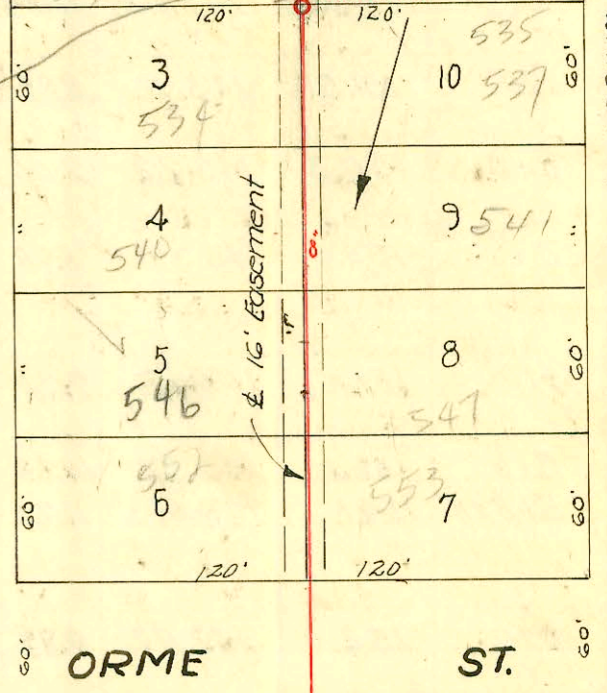 120' 120'
535
60' 3 10 537 60'
534
4 9 541 "
" 540
8"
℄ 16' Easement
" 5 8 60'
546 547
552 553
60' 6 7 60'
120' 120'
60' ORME ST. 60'